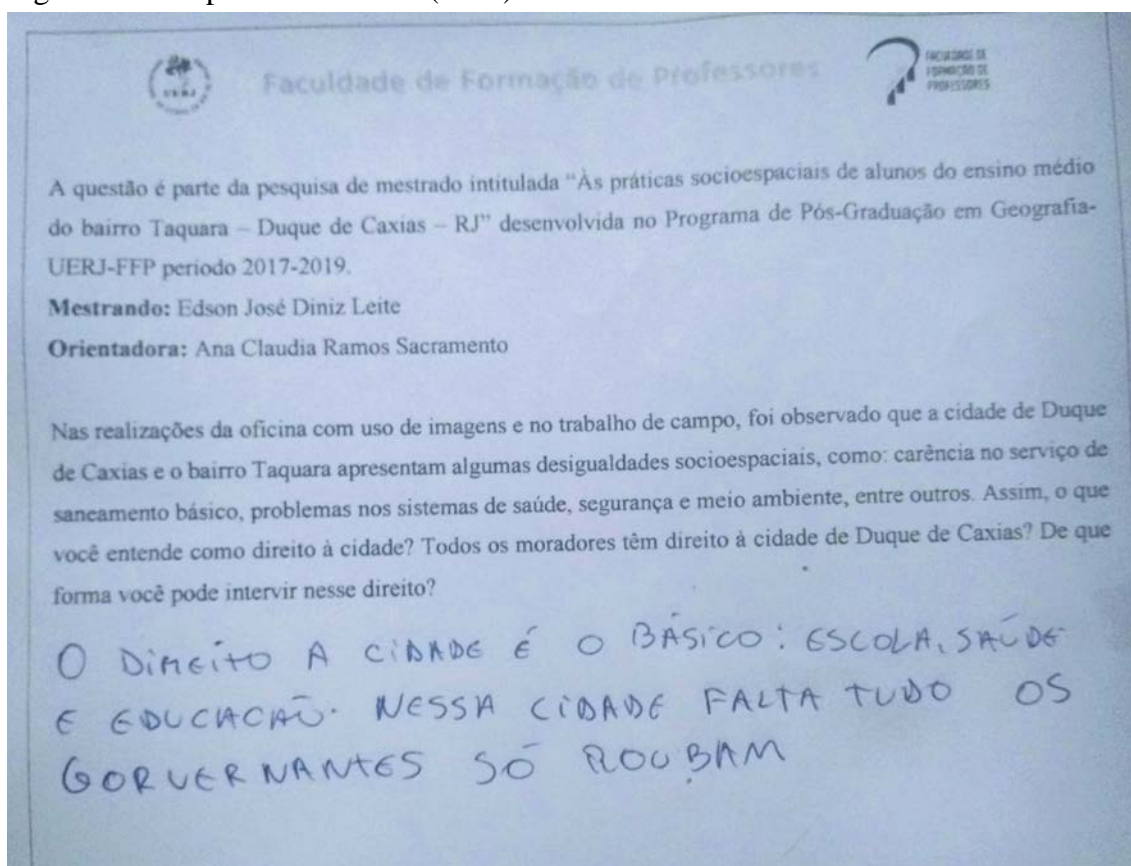 UERJ
Faculdade de Formação de Professores
FACULDADE DE
FORMAÇÃO DE
PROFESSORES
A questão é parte da pesquisa de mestrado intitulada “Às práticas socioespaciais de alunos do ensino médio
do bairro Taquara – Duque de Caxias – RJ” desenvolvida no Programa de Pós-Graduação em Geografia-
UERJ-FFP período 2017-2019.
Mestrando: Edson José Diniz Leite
Orientadora: Ana Claudia Ramos Sacramento
Nas realizações da oficina com uso de imagens e no trabalho de campo, foi observado que a cidade de Duque
de Caxias e o bairro Taquara apresentam algumas desigualdades socioespaciais, como: carência no serviço de
saneamento básico, problemas nos sistemas de saúde, segurança e meio ambiente, entre outros. Assim, o que
você entende como direito à cidade? Todos os moradores têm direito à cidade de Duque de Caxias? De que
forma você pode intervir nesse direito?
O DIREITO A CIDADE É O BÁSICO: ESCOLA, SAÚDE
E EDUCACAÕ. NESSA CIDADE FALTA TUDO OS
GORVERNANTES SÓ ROUBAM